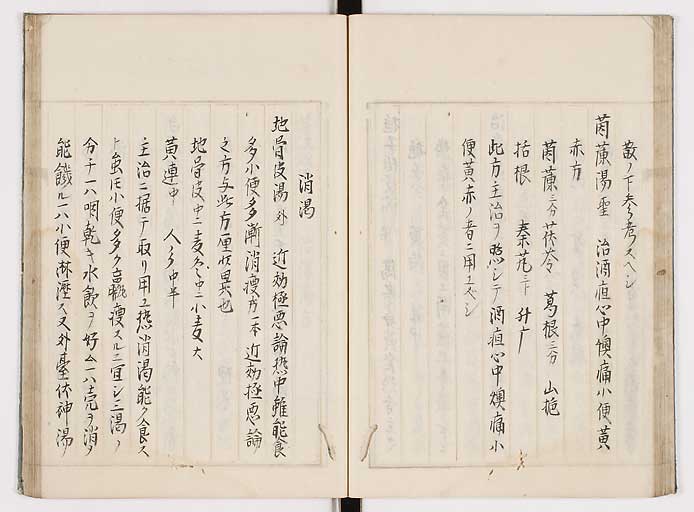 散ノ下参考スヘシ
茵蔯湯聖 治酒疸心中懊痛小便黄
赤方
茵蔯三分茯苓 葛根三分 山梔
括根 秦艽三 升广
此方主治ヲ照シテ酒疸心中懊痛小
便黄赤ノ者ニ用ユヘシ
消渇
地骨皮湯外 近効極要論熱中雖能食
多小便多漸消瘦方一本近効極要論
之方与此方一味異也
地骨皮中二麦冬中二小麦大
黄連中 人参中半
主治ニ据テ取リ用ユ热消渇能ク食ス
ト虽𪜈小便多ク羸瘦スルニ宜シ三渇ノ
分チハ咽乾キ水飲ヲ好ムハ売ヲ消ノ
能餓ルハ小便淋瀝ス又外臺茯神湯ノ